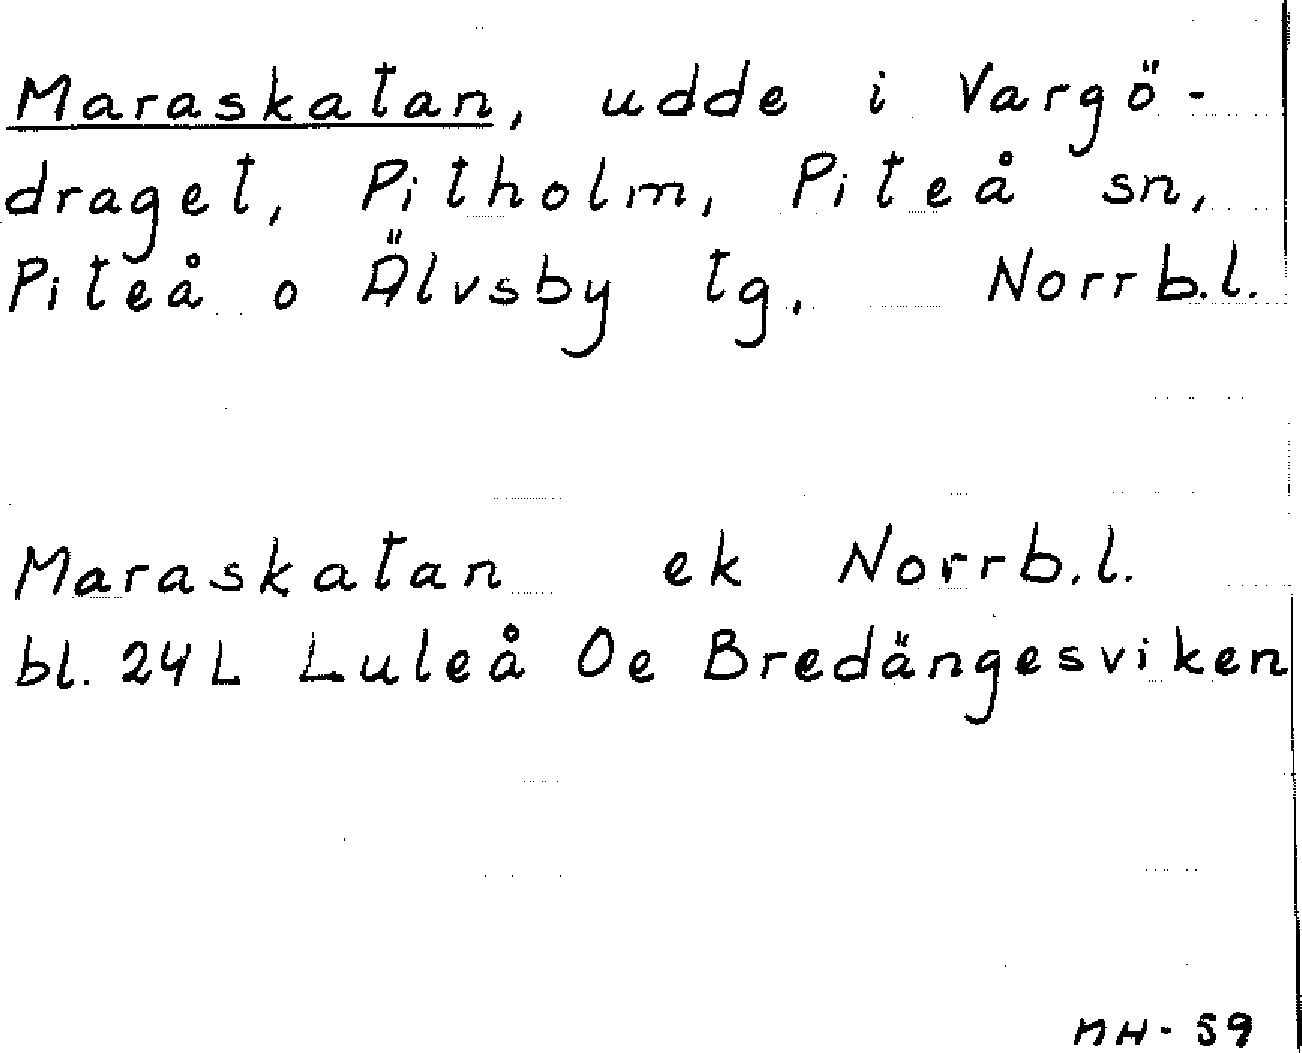 Maraskatan, udde i Vargö-
draget, Pitholm, Piteå sn,
Piteå o Älvsby tg. Norrb.l.
Maraskatan ek Norrb.l.
bl. 24L Luleå Oe Bredängesviken
MH-59